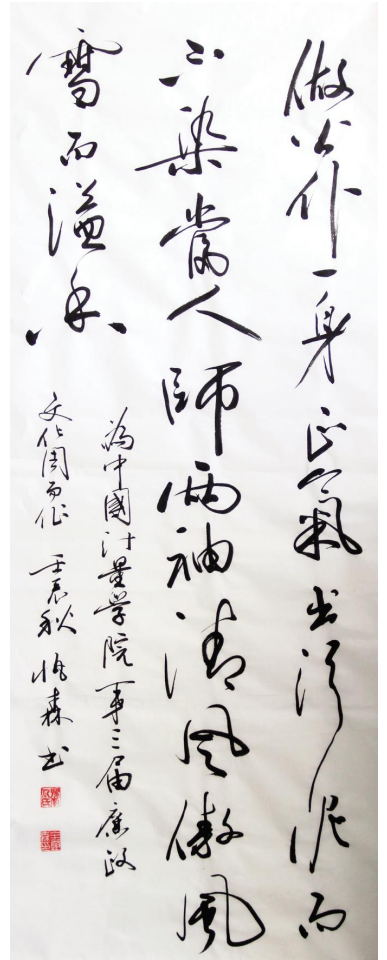 做公仆一身正氣出污泥而
不染當人師兩袖清風傲風
雪而溢香
為中國计量学院第三届廉政
文化周而作 壬辰秋 森书